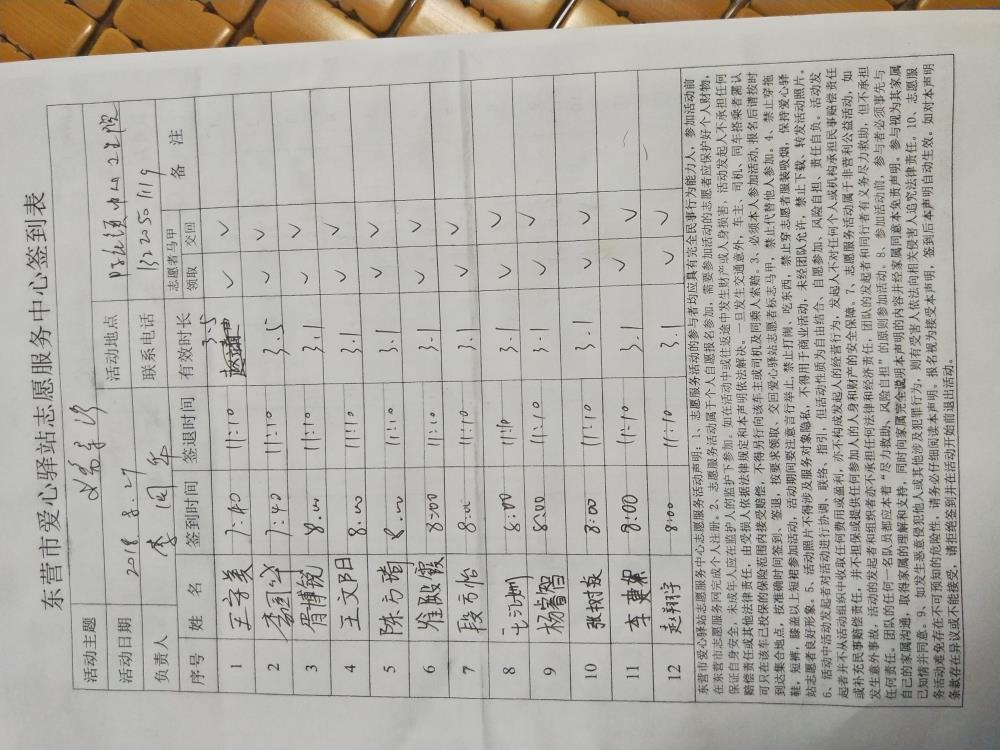 东营市爱心驿站志愿服务中心签到表
活动主题 活动地点
活动日期 2018.8.27 联系电话 13205011119
负责人 李国华 志愿者马甲 备 注
序号 姓 名 签到时间 签退时间 有效时长 领取 交回
1 王学美 7:40 11:10 3.5 ✓ ✓
2 李国华 7:40 11:10 3.5 ✓ ✓
3 胥博毓 8:00 11:10 3.1 ✓ ✓
4 王文阳 8:00 11:10 3.1 ✓ ✓
5 陈方皓 8:00 11:10 3.1 ✓ ✓
6 崔殿霞 8:00 11:10 3.1 ✓ ✓
7 段方怡 8:00 11:10 3.1 ✓ ✓
8 8:00 11:10 3.1 ✓ ✓
9 杨睿智 8:00 11:10 3.1 ✓ ✓
10 张树放 8:00 11:10 3.1 ✓ ✓
11 车 8:00 11:10 3.1 ✓ ✓
12 赵翔宇 8:00 11:10 3.1 ✓ ✓
东营市爱心驿站志愿服务中心志愿服务活动声明：1、志愿服务活动的参与者均应具有完全民事行为能力人，参加活动前
在东营市志愿服务网完成个人注册；2、志愿服务活动属于个人自愿报名参加，需要参加活动的志愿者应保护好个人财物，
保证自身安全，未成年人应在监护人的监护下参加。如在活动中或往返途中发生财产或人身损害，活动发起人不承担任何
赔偿责任或其他法律责任，由受损人依据法律规定和本声明依法解决。一旦发生交通意外，车主、司机、同车搭乘者需认
可只在该车已投保的保险范围内接受赔偿，不得另行向该车主或司机及同乘人索赔。3、必须本人参加活动，报名后请按时
到达集合地点，按准确时间签到、签退，按要求领取、交回爱心驿站志愿者标志马甲，禁止代替他人参加。4、禁止穿拖
鞋，短裤，膝盖以上短裙参加活动，活动期间要注意言行举止，禁止打闹、吃东西，禁止穿志愿者服装吸烟，保持爱心驿
站志愿者良好形象。5、活动照片不得涉及服务对象隐私，不得用于商业活动，未经团队允许，禁止下载、转发活动照片。
6、活动中活动发起者对活动进行协调、联络、指引，但活动性质为自由结合、自愿参加、风险自担、责任自负。活动发
起者并不从活动组织中收取任何费用或盈利，亦不构成发起人的经营行为，发起人不对任何个人或机构承担民事赔偿责任
或补充民事赔偿责任，并不担保或提供任何参加人的人身和财产的安全保障。7、志愿服务活动属于非营利公益活动，如
发生意外事故，活动的发起者和组织者亦不承担任何法律和经济责任，团队的发起者和同行者有义务尽力救助，但不承担
任何责任。团队的任何一名队员都应本着“尽力救助、风险自担”的原则参加活动。8、参加活动前，参与者必须事先与
自己的家属沟通，取得家属的理解和支持，同时向家属完全说明本声明的内容并经家属同意本免责声明。参与视为其家属
已知情并同意。9、如发生恶意侵犯他人或其他涉及犯罪行为，则有受害人依法向相关侵害人追究法律责任。10、志愿服
务活动难免存在不可预知的危险性，请务必仔细阅读本声明。报名视为接受本声明，签到后本声明自动生效。如对本声明
条款存在异议或不能接受，请拒绝签到并在活动开始前退出活动。